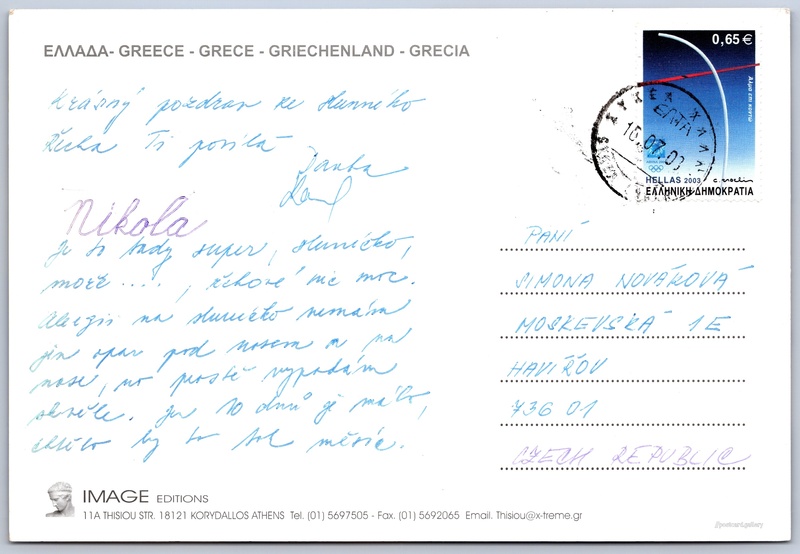 ΕΛΛΑΔΑ- GREECE - GRECE - GRIECHENLAND - GRECIA
0,65 €
Άλμα επί κοντώ
HELLAS 2003
ΕΛΛΗΝΙΚΗ ΔΗΜΟΚΡΑΤΙΑ
10.07.03
Krásný pozdrav ze slunného
Řecka Ti posílá
Nikola
Je to tady super, sluníčko,
moře ...., řekové nic moc.
Alergii na sluníčko nemám
jen opar pod nosem a na
nose, no prostě vypadám
skvěle. Jen 10 dnů je málo,
chtělo by to tak měsíc.
PANÍ
SIMONA NOVÁKOVÁ
MOSKEVSKÁ 1E
HAVÍŘOV
736 01
CZECH REPUBLIC
IMAGE EDITIONS
11A THISIOU STR. 18121 KORYDALLOS ATHENS Tel. (01) 5697505 - Fax. (01) 5692065 Email. Thisiou@x-treme.gr